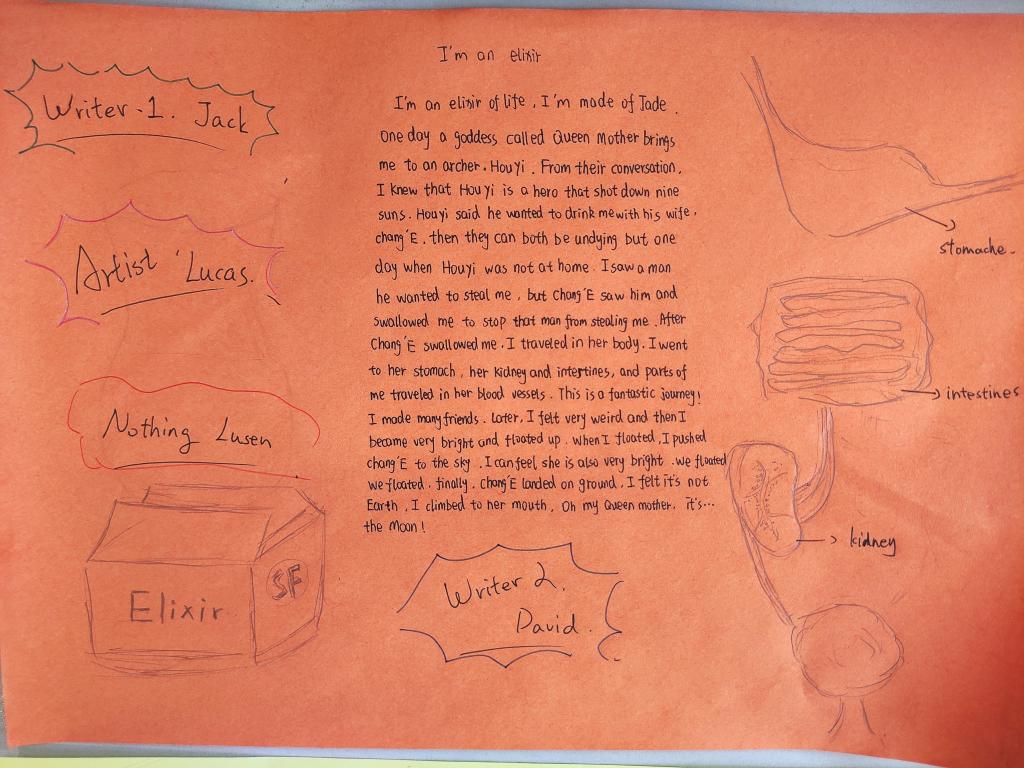 I'm an elixir
I'm an elixir of life, I'm made of Jade.
One day a goddess called Queen Mother brings
me to an archer, Hou Yi. From their conversation,
I knew that Hou Yi is a hero that shot down nine
suns. Hou Yi said he wanted to drink me with his wife,
chang'E, then they can both be undying but one
day when Hou Yi was not at home. I saw a man
he wanted to steal me, but Chang'E saw him and
swallowed me to stop that man from stealing me. After
Chang'E swallowed me, I traveled in her body. I went
to her stomach, her kidney and intertines, and parts of
me traveled in her blood vessels. This is a fantastic journey!
I made many friends. Later, I felt very weird and then I
became very bright and floated up. When I floated, I pushed
chang'E to the sky. I can feel she is also very bright. we floated
we floated. finally, Chang'E landed on ground, I felt it's not
Earth, I climbed to her mouth, Oh my Queen mother, it's...
the Moon!
Writer-1. Jack
Artist Lucas.
Nothing Lusen
Elixir
SF
Writer 2.
David.
stomache.
intestines
kidney